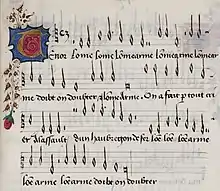 Tenor Lome lome lomearme lomearme lomear
me doibt on doubter A lomearme. On a fait p tout cri
er A lassault dun haubregon de fer loe loe loearme
loe arme loe arme doibt on doubter